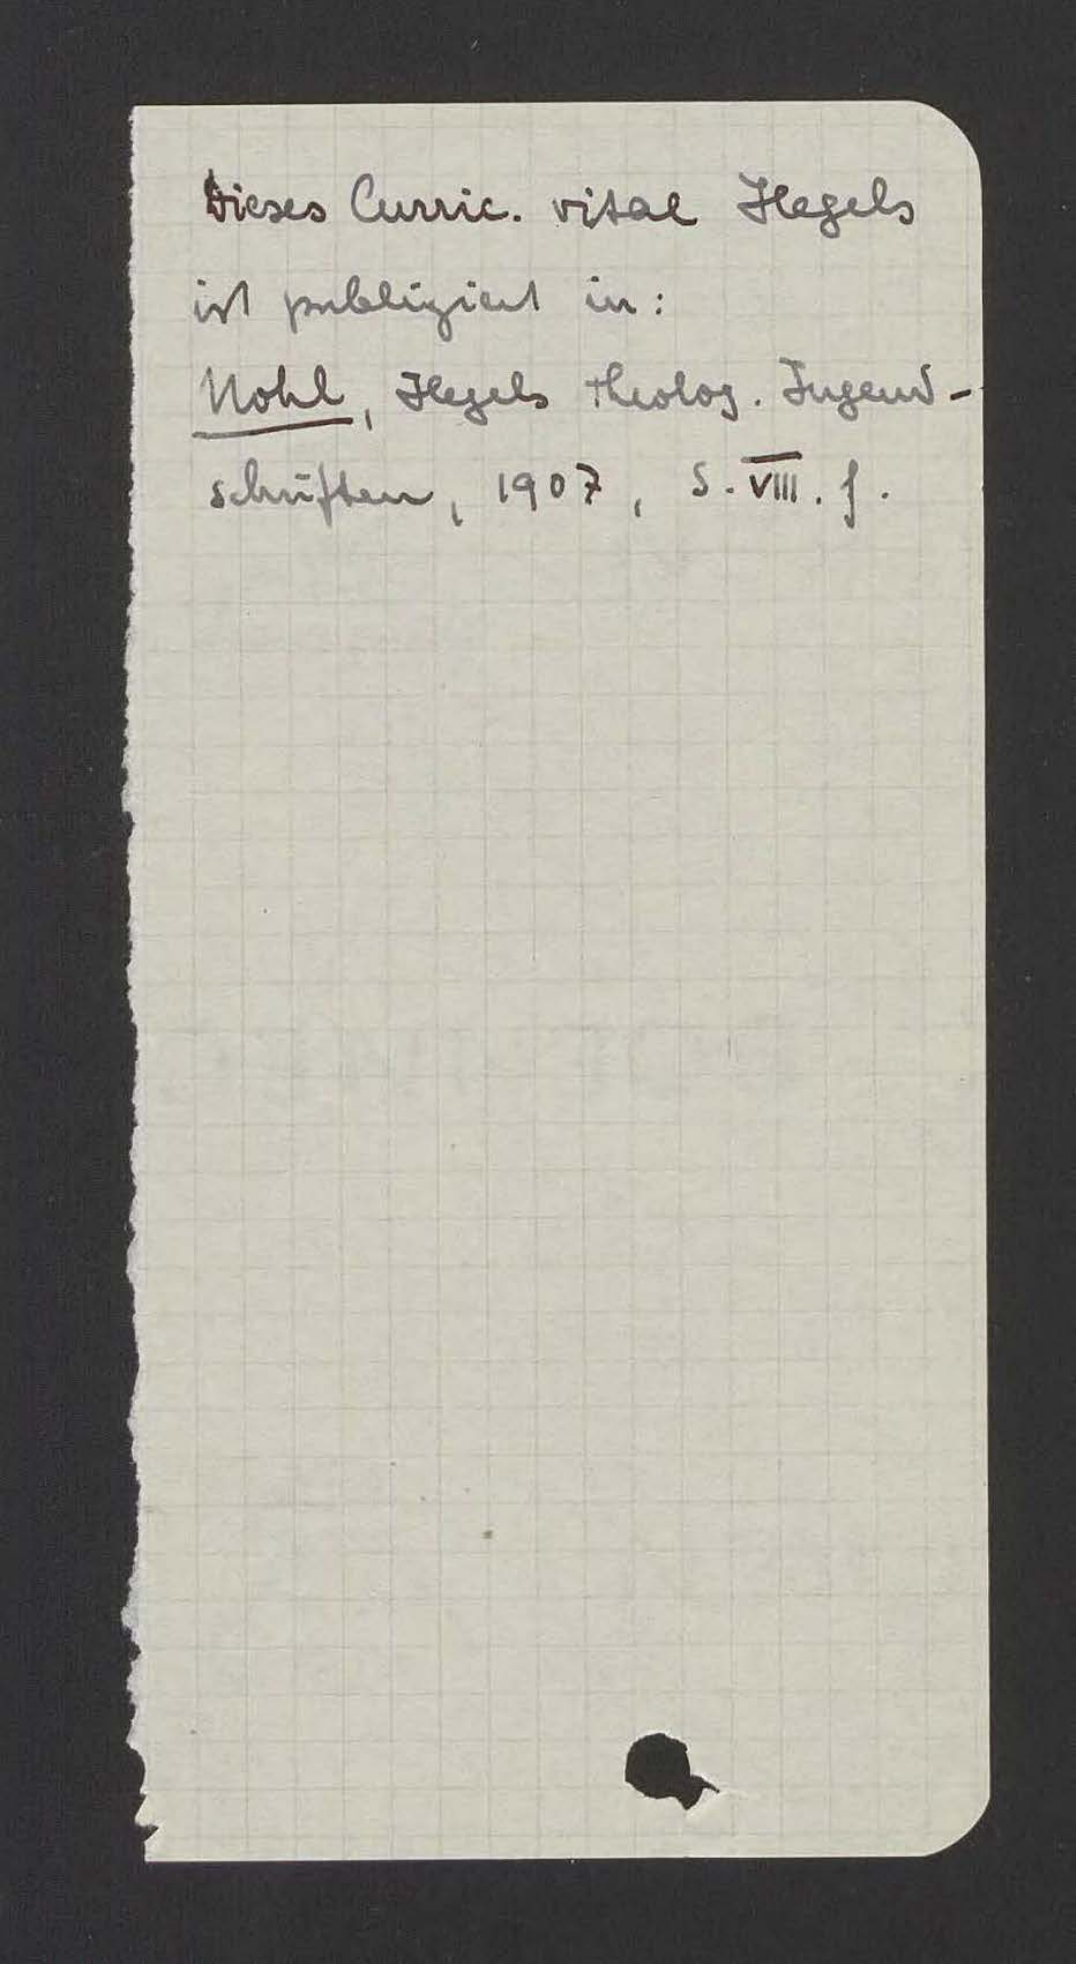 Dieses Curric. vitae Hegels
ist publiziert in:
Nohl, Hegels theolog. Jugend-
schriften, 1907, S. VIII. f.